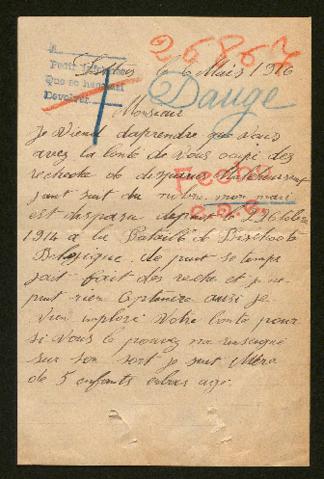 26867
Pedir informes
Que se hagan
Devolver
le 6 Mars 1916
Dauge
Monsieur
Je Viend daprendre que Vous
avez la bonté de Vous ocupé des
recherche de disparus Malereusement
jant suit du nombre mon mari
est disparu depuis le 29 Octobre
1914 a la Bataille de Bixchoote
Belgique. de puit se temps
jait fait des reche et je ne
put rien optenire aussi je
Vien imploré Votre bonté pour
si Vous le pouvez ma renseigné
sur son sort je suit Mère
de 5 enfants enbas age.